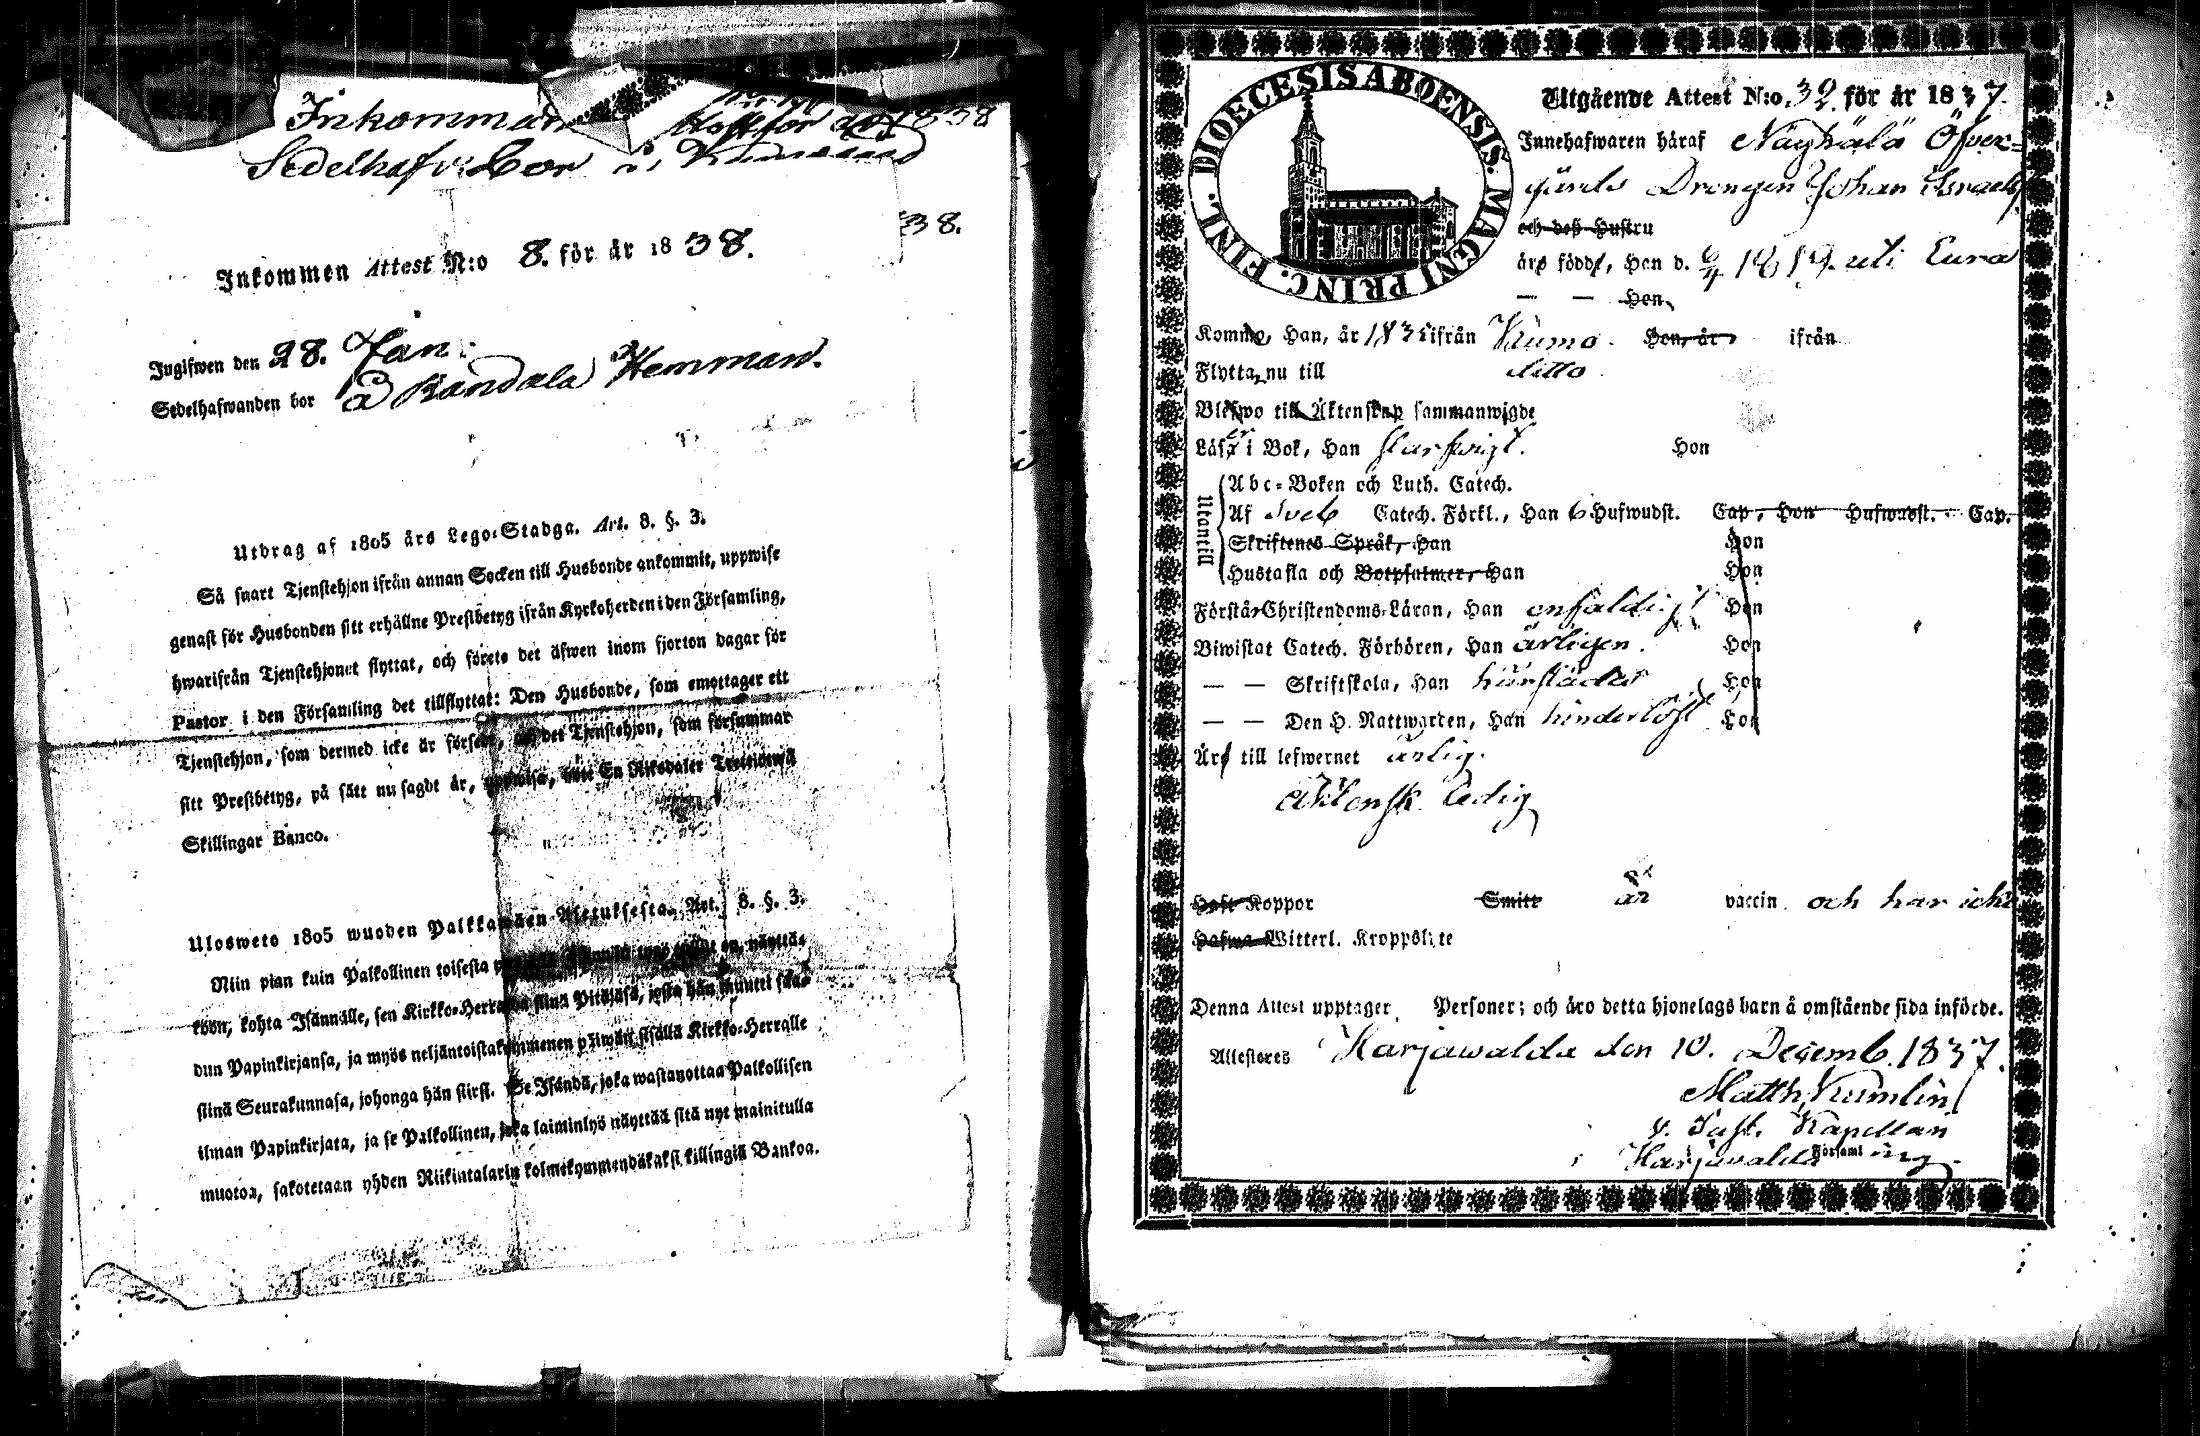 Inkomman
1838
Sedelhafv: Bor i Kumo
38.
Inkommen Attest N:o 8. för år 1838.
Ingifwen den 28. Jan:
Sedelhafwanden bor å Kandala Hemman.
Utdrag af 1805 års Lego-Stadga. Art. 8. §. 3.
Så snart Tjenstehjon ifrån annan Socken till Husbonde ankommit, uppwise
genast för Husbonden sitt erhållne Prestbetyg ifrån Kyrkoherden i den Församling,
hwarifrån Tjenstehjonet flyttat, och förete det äfwen inom fjorton dagar för
Pastor i den Församling det tillflyttat: Den Husbonde, som emottager ett
Tjenstehjon, som dermed icke är försedt, och det Tjenstehjon, som försummar
sitt Prestbetyg, på sätt nu sagdt är, uppwisa, böte En Riksdaler Trettiotwå
Skillingar Banco.
Ulosweto 1805 wuoden Palkkawäen Asetuksesta. Art. 8. §. 3.
Niin pian kuin Palkollinen toisesta on, näyttä-
köön, kohta Isännälle, sen Kirkko-Herralta siinä Pitäjäsä, josta hän muutti saa-
dun Papinkirjansa, ja myös neljäntoistakymmenen päiwän sisällä Kirkko-Herralle
siinä Seurakunnasa, johonga hän siirsi. Se Isändä, joka wastanottaa Palkollisen
ilman Papinkirjata, ja se Palkollinen, joka laiminlyö näyttää sitä nyt mainitulla
muotoa, sakotetaan yhden Riikintalarin kolmekymmendäkaksi killingiä Bankoa.
DIOECESIS ABOENSIS. MAGNI PRINC. FINL.
Utgående Attest N:o 32 för år 1837.
Innehafwaren häraf Näyhälä Öfver-
gårds Drengen Johan Israelss
och dess Hustru
äro födde, Han d. 6/4 1819. uti Eura
— — Hon
Komme, Han, år 183 ifrån Kumo. Hon, år ifrån
Flytta nu till ditto
Blefwo till Äktenskap sammanwigde
Läser i Bok, Han Hon
Utantill
Abc-Boken och Luth. Catech.
Af Sveb Catech. Förkl., Han 6 Hufwudst. Cap, Hon Hufwudst. Cap.
Skriftenes Språk, Han Hon
Hustafla och Botpsalmer, Han Hon
Förstår Christendoms-Läran, Han enfaldigt Hon
Biwistat Catech. Förhören, Han årligen. Hon
— — Skriftskola, Han härstädes Hon
— — Den H. Nattwarden, Han hinderlöst Hon
Äro till lefwernet ärlig.
Äktensk. Ledig
Haft Koppor Smitt är vaccin och har icke
Hafwa Witterl. Kroppslyte
Denna Attest upptager Personer; och äro detta hjonelags barn å omstående sida införde.
Attesteres Harjawalda den 10. Decemb. 1837.
Matth. Kumlin
v. Past. Kapellan
i Harjawalda Församling.